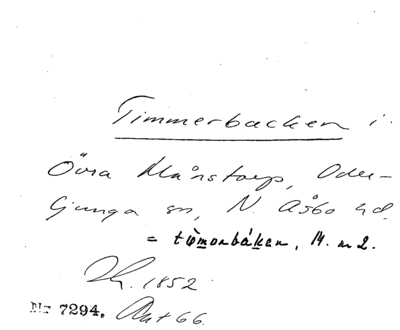 Timmerbacken i
Övra Månstorp, Oder-
ljunga sn, N. Åsbo hd.
= tìmonbákен, 14. m 2.
Dr. 1852.
Nr 7294. Akt 66.